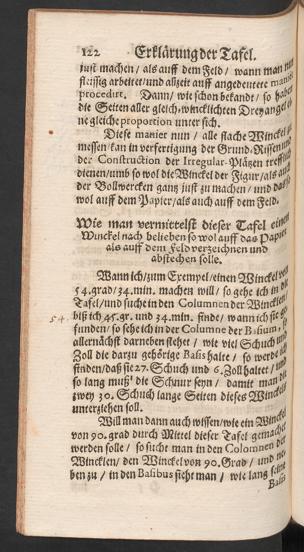 122 Erklärung der Tafel.
just machen / als auff dem Feld / wann man nun
fleissig arbeitet / und allzeit auff angedeutete manier
procedirt. Dann / wie schon bekandt / so haben
die Seiten aller gleich-wincklichten Dreyangel
ne gleiche proportion unter sich.
Diese manier nun / alle flache Winckel zu
messen / kan in verfertigung der Grund-Rissen und
der Construction der Irregular-Plätzen trefflich
dienen / umb so wol die Winckel der Figur / als auch
der Bollwercken gantz just zu machen / und das so
wol auff dem Papier / als auch auff dem Feld.
Wie man vermittelst dieser Tafel einen
Winckel nach belieben so wol auff das Papier
als auff dem Feld verzeichnen und
abstechen solle.
Wann ich / zum Exempel / einen Winckel von
54. grad / 34. min. machen will / so gehe ich in die
Tafel / und suche in den Columnen der Wincklen /
54. biß ich 45. gr. und 34. min. finde / wann ich sie ge-
funden / so sehe ich in der Columne der Basium, so
allernächst darneben stehet / wie viel Schuch und
Zoll die darzu gehörige Basis halte / so werde ich
finden / daß sie 27. Schuch und 6. Zoll haltet / und
so lang muß die Schnur seyn / damit man die
zwey 30. Schuch lange Seiten dieses Winckels
unterziehen soll.
Will man dann auch wissen / wie ein Winckel
von 90. grad durch Mittel dieser Tafel gemachet
werden solle / so sucht man in den Columnen der
Wincklen / den Winckel von 90. Grad / und ne-
ben zu / in den Basibus sieht man / wie lang seine
Basis